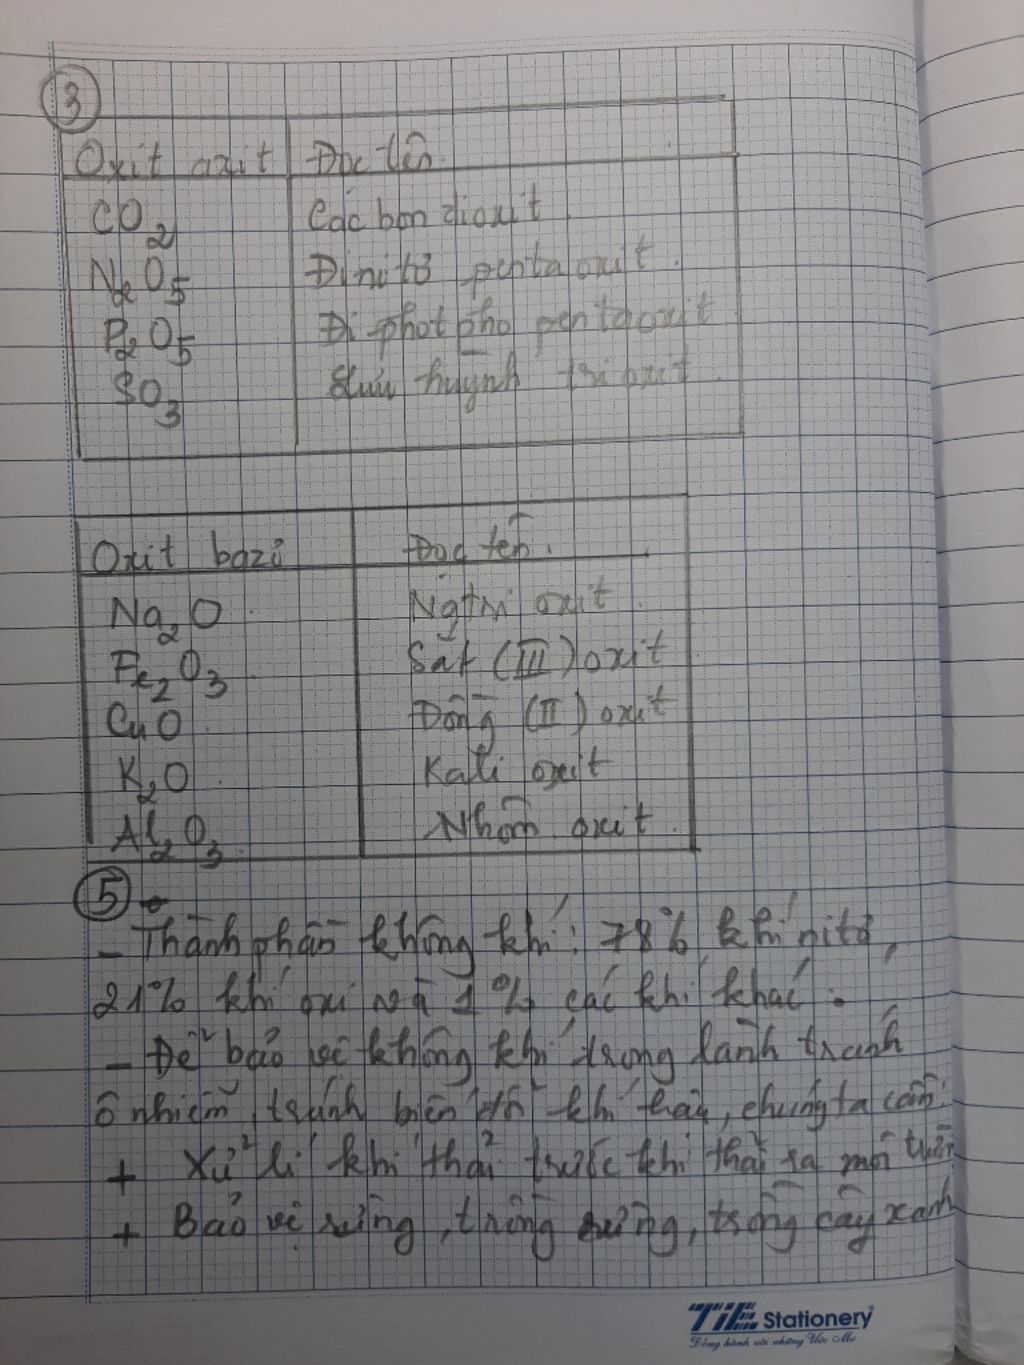 3
Oxit axit Đọc tên.
CO2 Các bon đioxit
N2O5 Đi nitơ penta oxit.
P2O5 Đi phot pho pentaoxit
SO3 Lưu huỳnh tri oxit.
Oxit bazơ Đọc tên.
Na2O. Natri oxit.
Fe2O3 Sắt (III) oxit
CuO. Đồng (II) oxit
K2O. Kali oxit
Al2O3. Nhôm oxit.
5
- Thành phần không khí: 78% khí nitơ,
21% khí oxi và 1% các khí khác.
- Để bảo vệ không khí trong lành tránh
ô nhiễm, tránh biến đổi khí hậu, chúng ta cần:
+ Xử lí khí thải trước khi thải ra môi trườn
+ Bảo vệ rừng, trồng rừng, trồng cây xanh
TiE Stationery
Đồng hành với những Ước Mơ